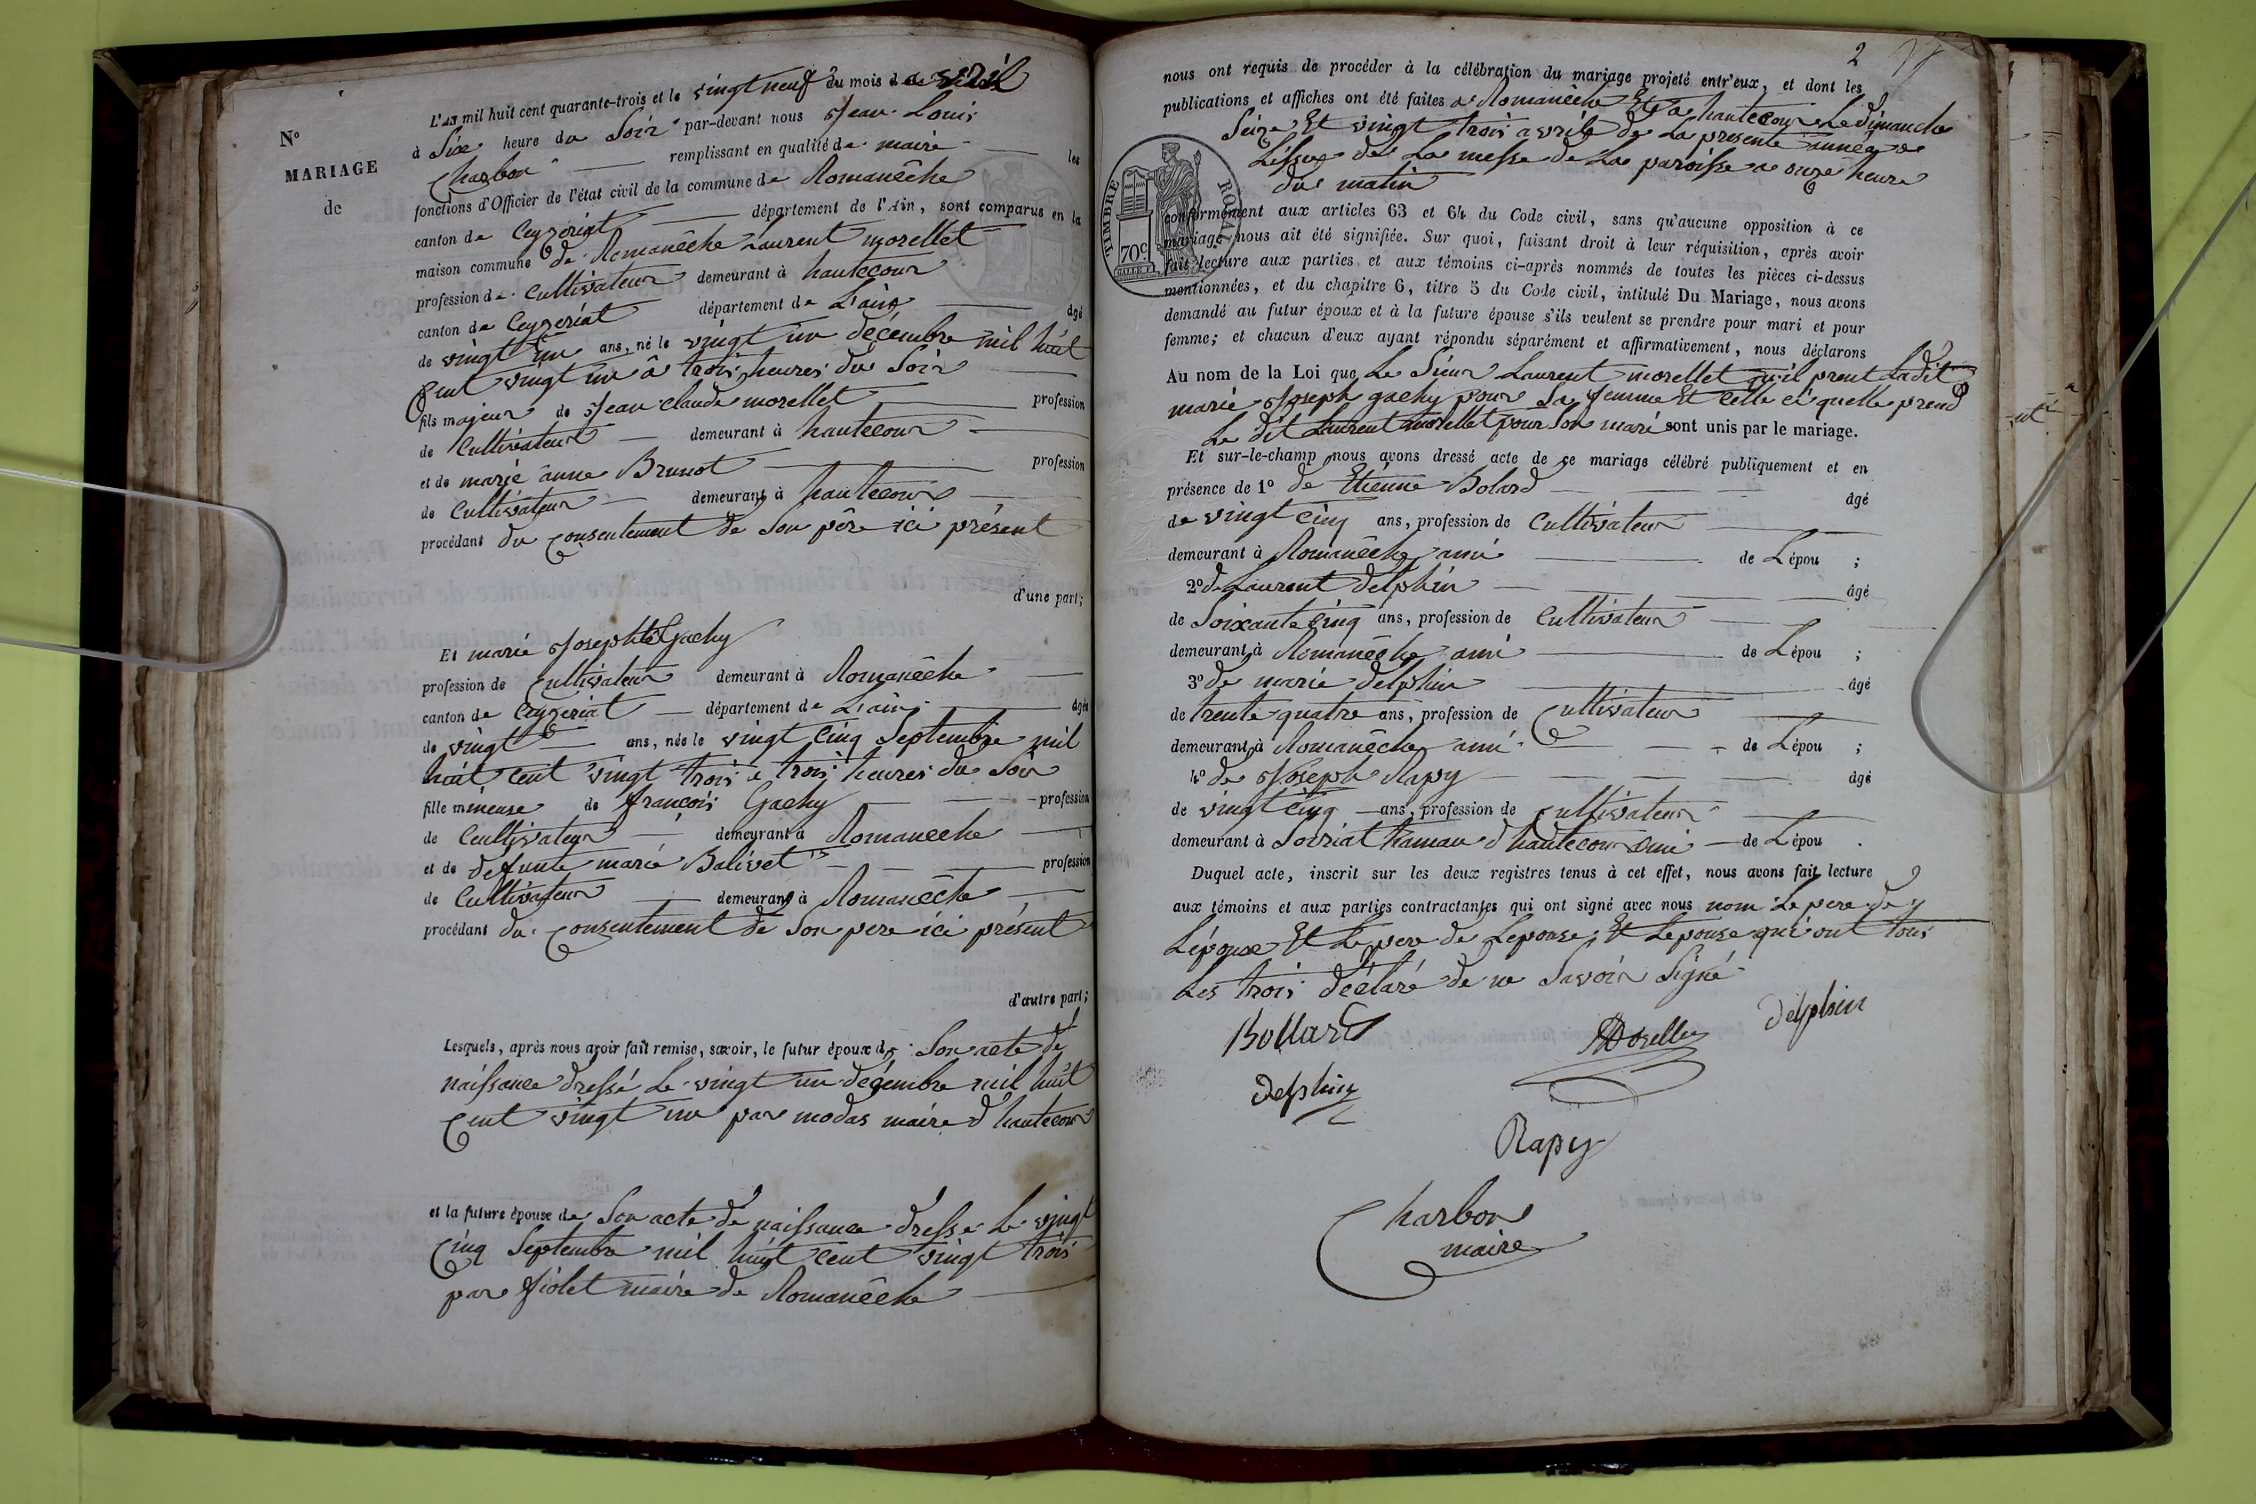 N°
MARIAGE
de
L'an mil huit cent quarante-trois et le vingt neuf du mois de avril
à Six heure du Soir par-devant nous Jean Louis
Charbon remplissant en qualité de maire les
fonctions d'Officier de l'état civil de la commune de Romanêche
canton de Ceyzeriat département de l'Ain, sont comparus en la
maison commune de Romanêche Laurent morellet
profession de Cultivateur demeurant à hautecour
canton de Ceyzeriat département de L'ain âgé
de vingt un ans, né le vingt un décembre mil huit
Cent vingt un à trois heures du Soir
fils majeur de Jean claude morellet profession
de Cultivateur demeurant à hautecour
et de marie anne Brunot profession
de Cultivateur demeurant à hautecour
procédant du Consentement de Son père ici présent
d'une part;
Et marie Josephte Gachy
profession de Cultivateur demeurant à Romanêche
canton de Ceyzeriat département de L'ain âgée
de vingt ans, née le vingt Cinq Septembre mil
huit cent vingt trois a trois heures du Soir
fille mineuse de françois Gachy profession
de Cultivateur demeurant à Romanêche
et de defunte marie Balivet profession
de Cultivateur demeurant à Romanêche
procédant du Consentement de Son pere ici présent
d'autre part;
Lesquels, après nous avoir fait remise, savoir, le futur époux de Son acte de
naissance dressé Le vingt un décembre mil huit
Cent vingt un par modas maire d'hautecour
et la future épouse de Son acte de naissance dresse Le vingt
Cinq Septembre mil huit cent vingt trois
par Violet maire de Romanêche
2
nous ont requis de procéder à la célébration du mariage projeté entr'eux, et dont les
publications et affiches ont été faites a Romanêche Et a hautecour Le dimanche
Seize Et vingt trois avrile de La presente année a
L'éssue de La messe de La paroisse a onze heure
du matin
TIMBRE ROYAL
70c
conformément aux articles 63 et 64 du Code civil, sans qu'aucune opposition à ce
mariage nous ait été signifiée. Sur quoi, faisant droit à leur réquisition, après avoir
fait lecture aux parties et aux témoins ci-après nommés de toutes les pièces ci-dessus
mentionnées, et du chapitre 6, titre 5 du Code civil, intitulé Du Mariage, nous avons
demandé au futur époux et à la future épouse s'ils veulent se prendre pour mari et pour
femme; et chacun d'eux ayant répondu séparément et affirmativement, nous déclarons
Au nom de la Loi que Le Sieur Laurent morellet qu'il prent Ladite
marie Joseph gachy pour Sa femme Et Celle ci quelle prend
Le dit Laurent morellet pour Son mari sont unis par le mariage.
Et sur-le-champ nous avons dressé acte de ce mariage célébré publiquement et en
présence de 1° de Etienne Bolard âgé
de vingt Cinq ans, profession de Cultivateur
demeurant à Romanêche ami de L'épou ;
2° de Laurent delphin âgé
de Soixante Cinq ans, profession de Cultivateur
demeurant à Romanêche ami de L'épou ;
3° de marie delphin âgé
de trente quatre ans, profession de Cultivateur
demeurant à Romanêche ami de L'épou ;
4° de Joseph Rapy âgé
de vingt Cinq ans, profession de Cultivateur
demeurant à hamau d'hautecour ami de L'épou .
Duquel acte, inscrit sur les deux registres tenus à cet effet, nous avons fait lecture
aux témoins et aux parties contractantes qui ont signé avec nous nom Le pere de
L'épouse Et Le pere de Lepouse, Et Lepouse qui ont tous
Les trois déclaré de ne Savoir Signé
Bollard
Morellet
Delphin
Delphin
Rapy
Charbon
maire